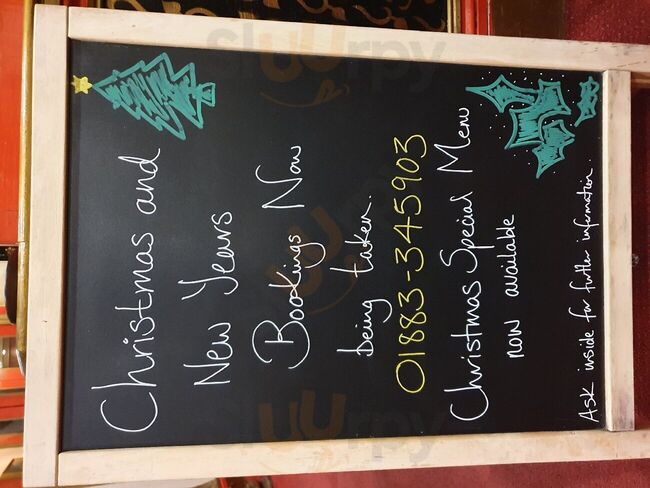 Christmas and
New Years
Bookings Now
being taken.
01883-345903
Christmas Special Menu
now available
Ask inside for further information.
sluurpy
sluurpy